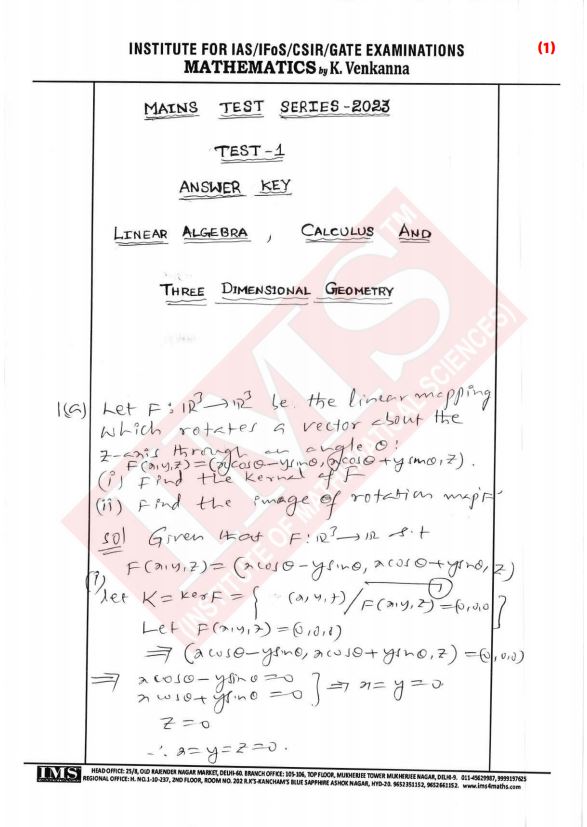 INSTITUTE FOR IAS/IFoS/CSIR/GATE EXAMINATIONS
(1)
MATHEMATICS by K. Venkanna
MAINS TEST SERIES-2023
TEST-1
ANSWER KEY
LINEAR ALGEBRA, CALCULUS AND
THREE DIMENSIONAL GEOMETRY
1(a) Let F: ℝ³→ℝ³ be the linear mapping
which rotates a vector about the
z-axis through an angle θ:
F(x,y,z)=(xcosθ-ysinθ, xcosθ+ysinθ, z).
(i) Find the kernel of F
(ii) Find the image of rotation map F.
Sol Given that F: ℝ³→ℝ s.t
F(x,y,z)=(xcosθ-ysinθ, xcosθ+ysinθ, z)
(i) let K = ker F = { (x,y,z) / F(x,y,z)=(0,0,0) }
Let F(x,y,z)=(0,0,0)
⇒ (xcosθ-ysinθ, xcosθ+ysinθ, z)=(0,0,0)
⇒ xcosθ-ysinθ=0
xcosθ+ysinθ=0 ] ⇒ x=y=0
z=0
∴ x=y=z=0.
IMS
(INSTITUTE OF MATHEMATICAL SCIENCES)
TM
IMS
HEAD OFFICE: 25/8, OLD RAJENDER NAGAR MARKET, DELHI-60. BRANCH OFFICE: 105-106, TOP FLOOR, MUKHERJEE TOWER MUKHERJEE NAGAR, DELHI-9. 011-45629987, 9999197625
REGIONAL OFFICE: H. NO.1-10-237, 2ND FLOOR, ROOM NO. 202 R.K'S-KANCHAM'S BLUE SAPPHIRE ASHOK NAGAR, HYD-20. 9652351152, 9652661152. www.ims4maths.com